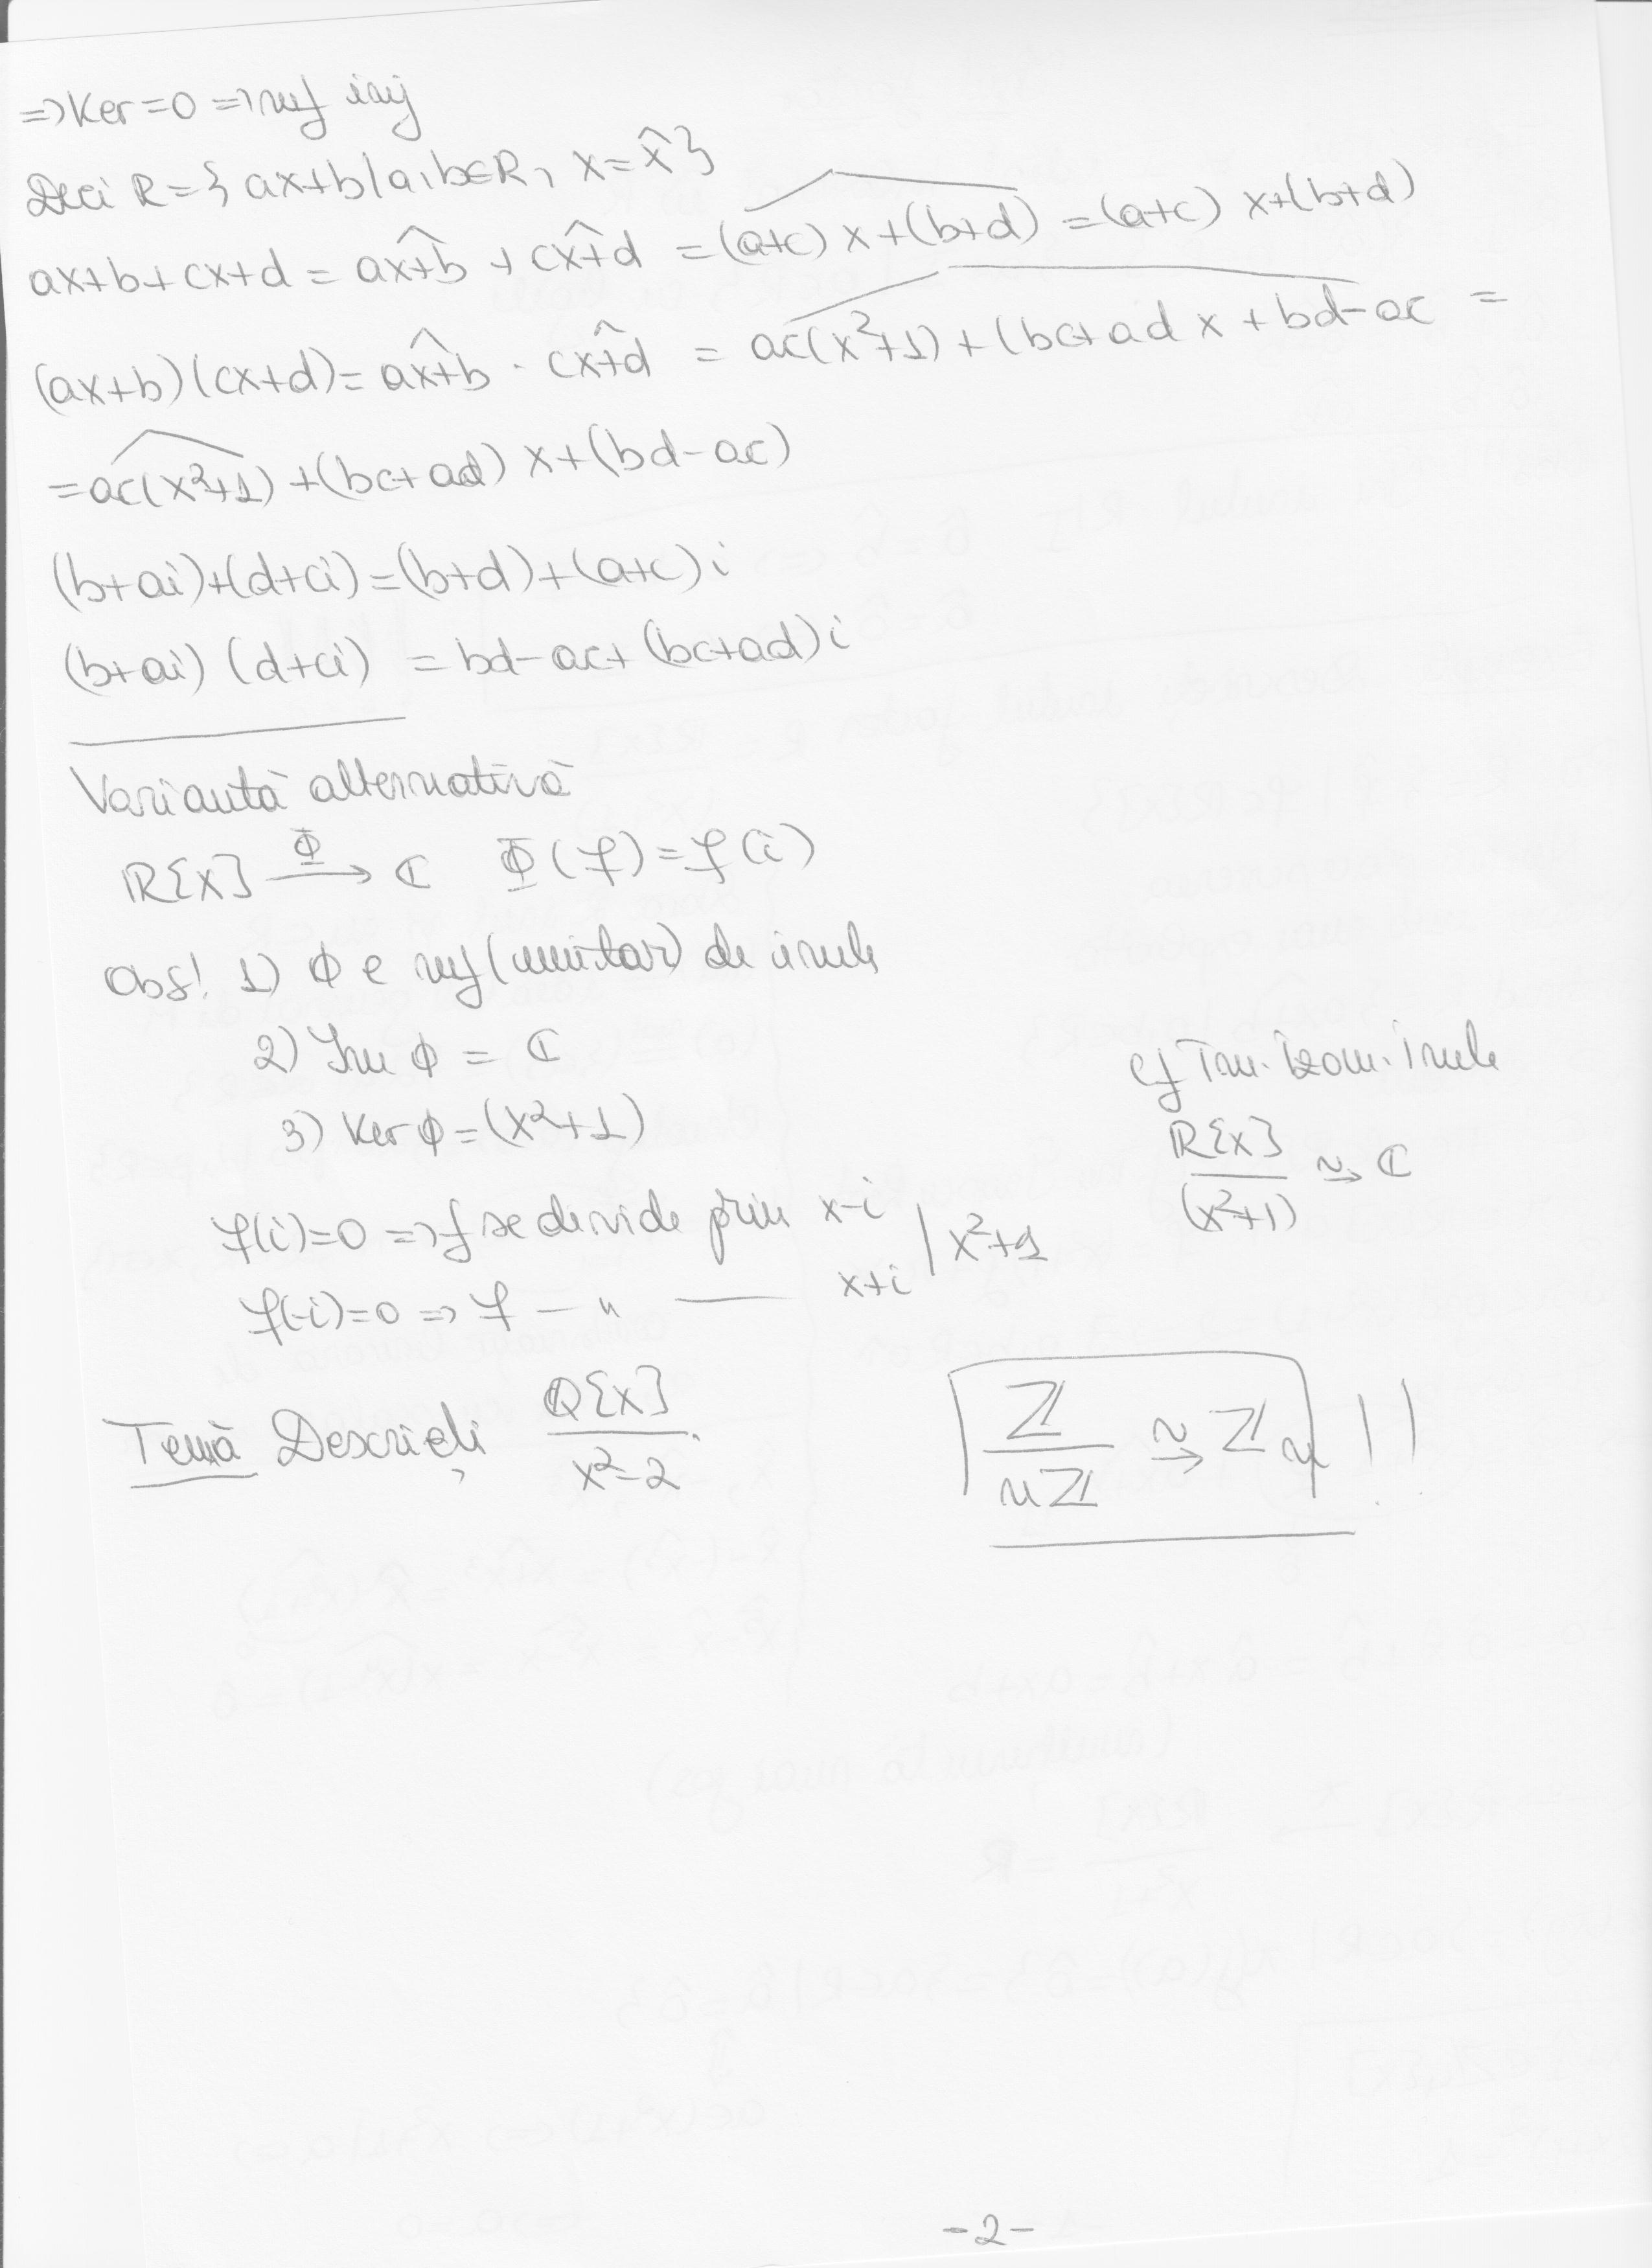 => Ker=0 => mf inj
Deci R={ax+b|a,b∈R, x=x̂}
ax+b+cx+d = \widehat{ax+b} + \widehat{cx+d} = \widehat{(a+c)x+(b+d)} = (a+c)x+(b+d)
(ax+b)(cx+d)= \widehat{ax+b} · \widehat{cx+d} = \widehat{ac(x²+1)+(bc+ad x+bd-ac} =
= \widehat{ac(x²+1)} +(bc+ad) x+(bd-ac)
(b+ai)+(d+ci)=(b+d)+(a+c)i
(b+ai) (d+ci) = bd-ac+ (bc+ad)i
Variantă alternativă
ℝ[x] —Φ→ ℂ Φ(f)=f(i)
Obs! 1) Φ e mf (unitar) de inele
2) Im Φ = ℂ
3) Ker Φ = (x²+1)
cf Tm. Izom. Inele
ℝ[x]/(x²+1) ⥲ ℂ
f(i)=0 => f se divide prin x-i | x²+1
f(-i)=0 => f — " — x+i
Temă Descrieți ℚ[x]/x²-2
ℤ/nℤ ⥲ ℤn !!
-2-